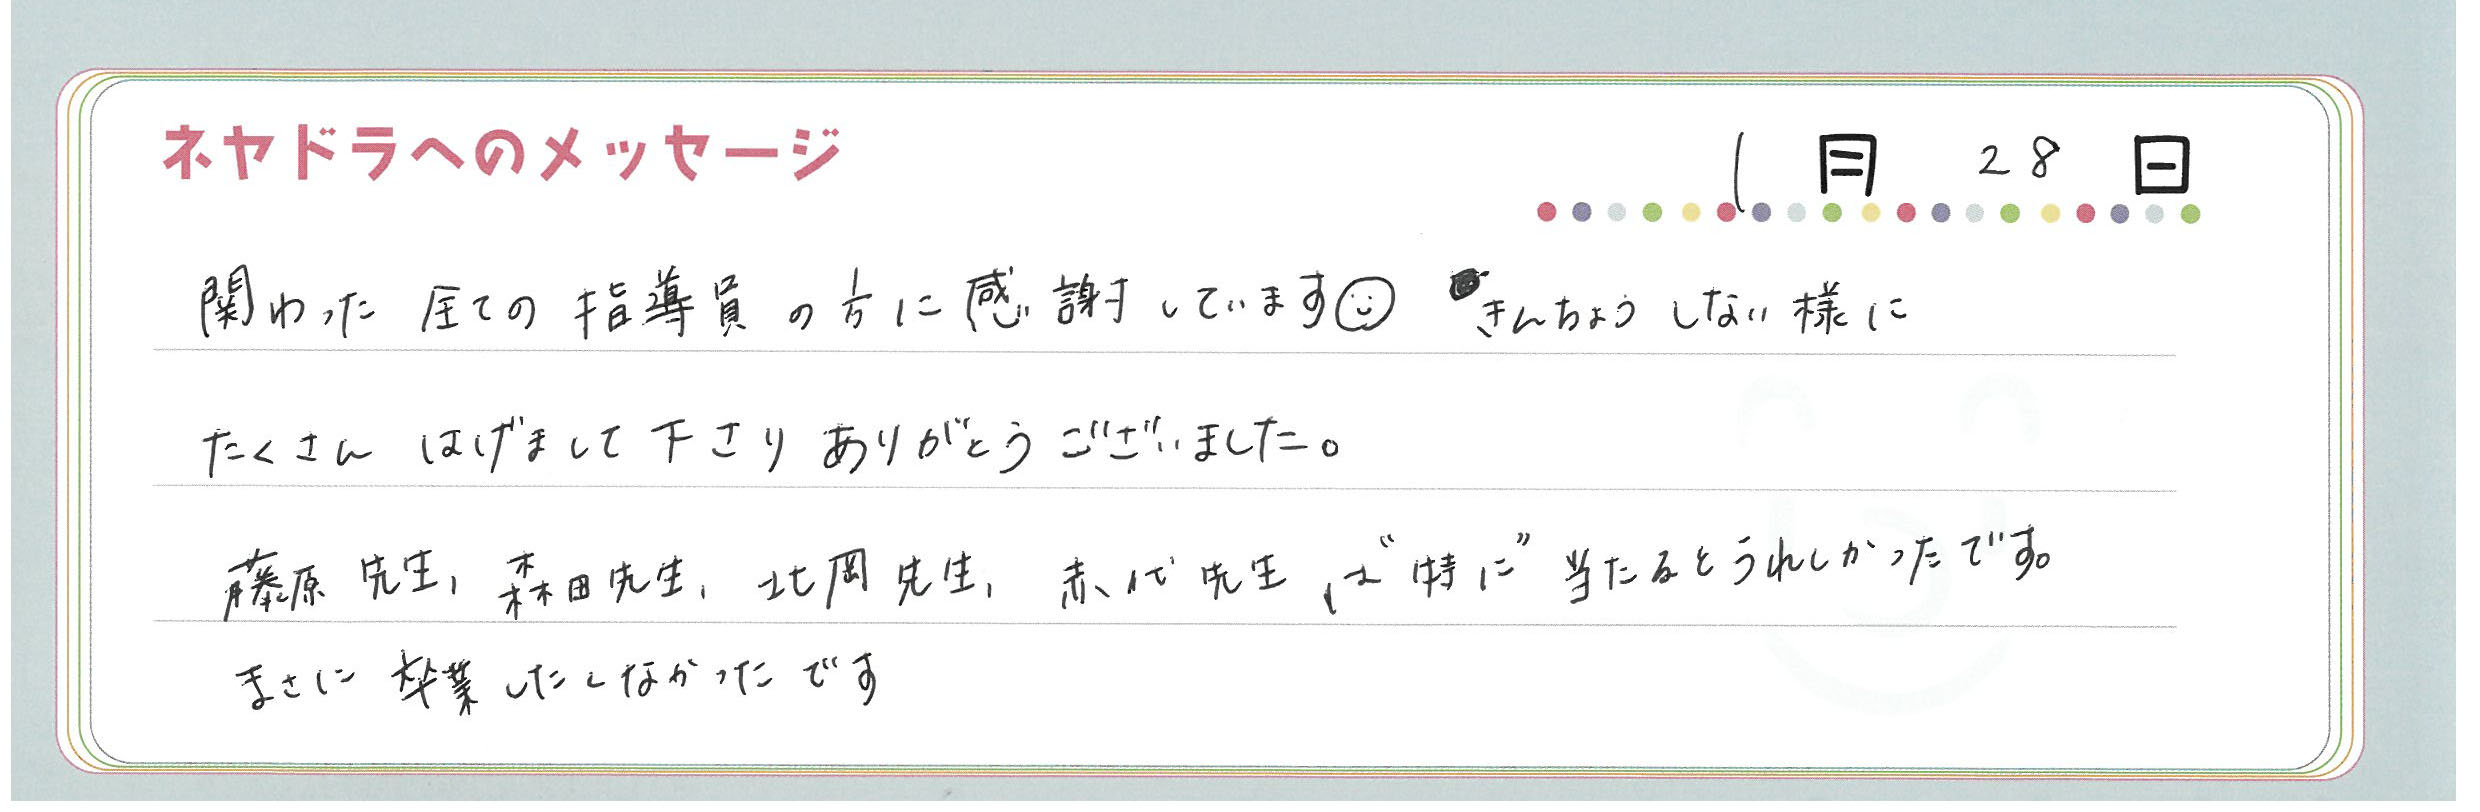 ネヤドラへのメッセージ
1月 28日
関わった 全ての 指導員の方に感謝しています☺ きんちょうしない様に
たくさん はげまして下さり ありがとうございました。
藤原先生, 森田先生, 北岡先生, 赤代先生 は"特に"当たるとうれしかったです。
まさに 卒業したくなかったです